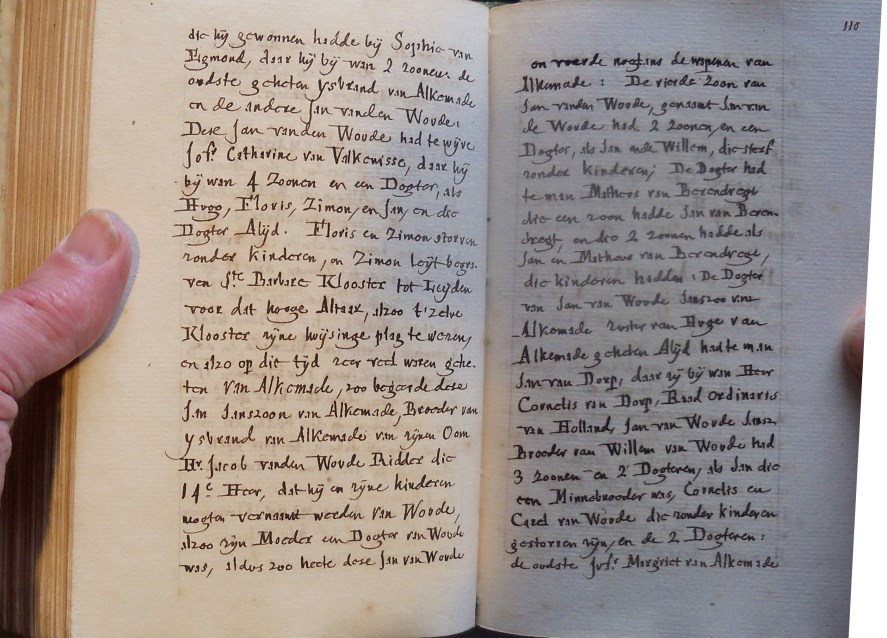 die hij gewonnen hadde bij Sophia van
Egmond, daar hij bij wan 2 zoonen. de
oudste geheten ysbrand van Alkemade
en de andere Jan vanden Woude.
Dese Jan vanden Woude had te wijve
Jofr. Catharine van Valkenisse, daar hij
bij wan 4 Zoonen en een Dogter, als
Hugo, Floris, Zimon, en Jan, en die
Dogter Alijd. Floris en Zimon storven
zonder kinderen, en Zimon leyt begra-
ven Ste. Barbare Klooster tot Leyden
voor dat hooge Altaar, alzoo t'zelve
Klooster zijne huijsinge plag te wezen,
en alzo op die tijd zeer veel waren gehe-
ten van Alkemade, zoo begeerde dese
Jan Janszoon van Alkemade, Broeder van
ysbrand van Alkemade van zijnen Oom
Hr. Jacob vanden Woude Ridder die
14e Heer, dat hij en zijne kinderen
mogten vernaamt werden van Woude,
alzoo zijn Moeder een Dogter van Woude
was, aldus zoo heete dese Jan van Woude
110
en voerde nogtans de wapenen van
Alkemade: De vierde Zoon van
Jan vanden Woude, genaamt Jan van
de Woude had 2 zoonen, en een
Dogter, als Jan ende Willem, die sterf
zonder kinderen; De Dogter had
te man Matheus van Berendregt
die een zoon hadde Jan van Beren-
dregt, en die 2 zoonen hadde als
Jan en Matheus van Berendregt,
die kinderen hadden: De Dogter
van Jan van Woude Janszoo van
Alkemade zuster van Huge van
Alkemade geheten Alijd had te man
Jan van Dorp, daar zij bij wan Heer
Cornelis van Dorp, Raad Ordinaris
van Holland, Jan van Woude Jansz
Broeder van Willem van Woude had
3 zoonen en 2 Dogteren, als Jan die
een Minnebroeder was, Cornelis en
Carel van Woude die zonder kinderen
gestorven zijn, en de 2 Dogteren:
de oudste Jufr. Margriet van Alkemade